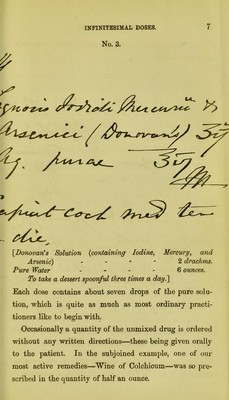 INFINITESIMAL DOSES. 7
No. 3.
Iodidi Mercurii &
Arsenici (Donovan's) ʒij
Aq. purae ℥vj
M
capiat coch med ter
die,
[Donovan's Solution (containing Iodine, Mercury, and
Arsenic) - - - - 2 drachms.
Pure Water - - - - 6 ounces.
To take a dessert spoonful three times a day.]
Each dose contains about seven drops of the pure solu-
tion, which is quite as much as most ordinary practi-
tioners like to begin with.
Occasionally a quantity of the unmixed drug is ordered
without any written directions—these being given orally
to the patient. In the subjoined example, one of our
most active remedies—Wine of Colchicum—was so pre-
scribed in the quantity of half an ounce.